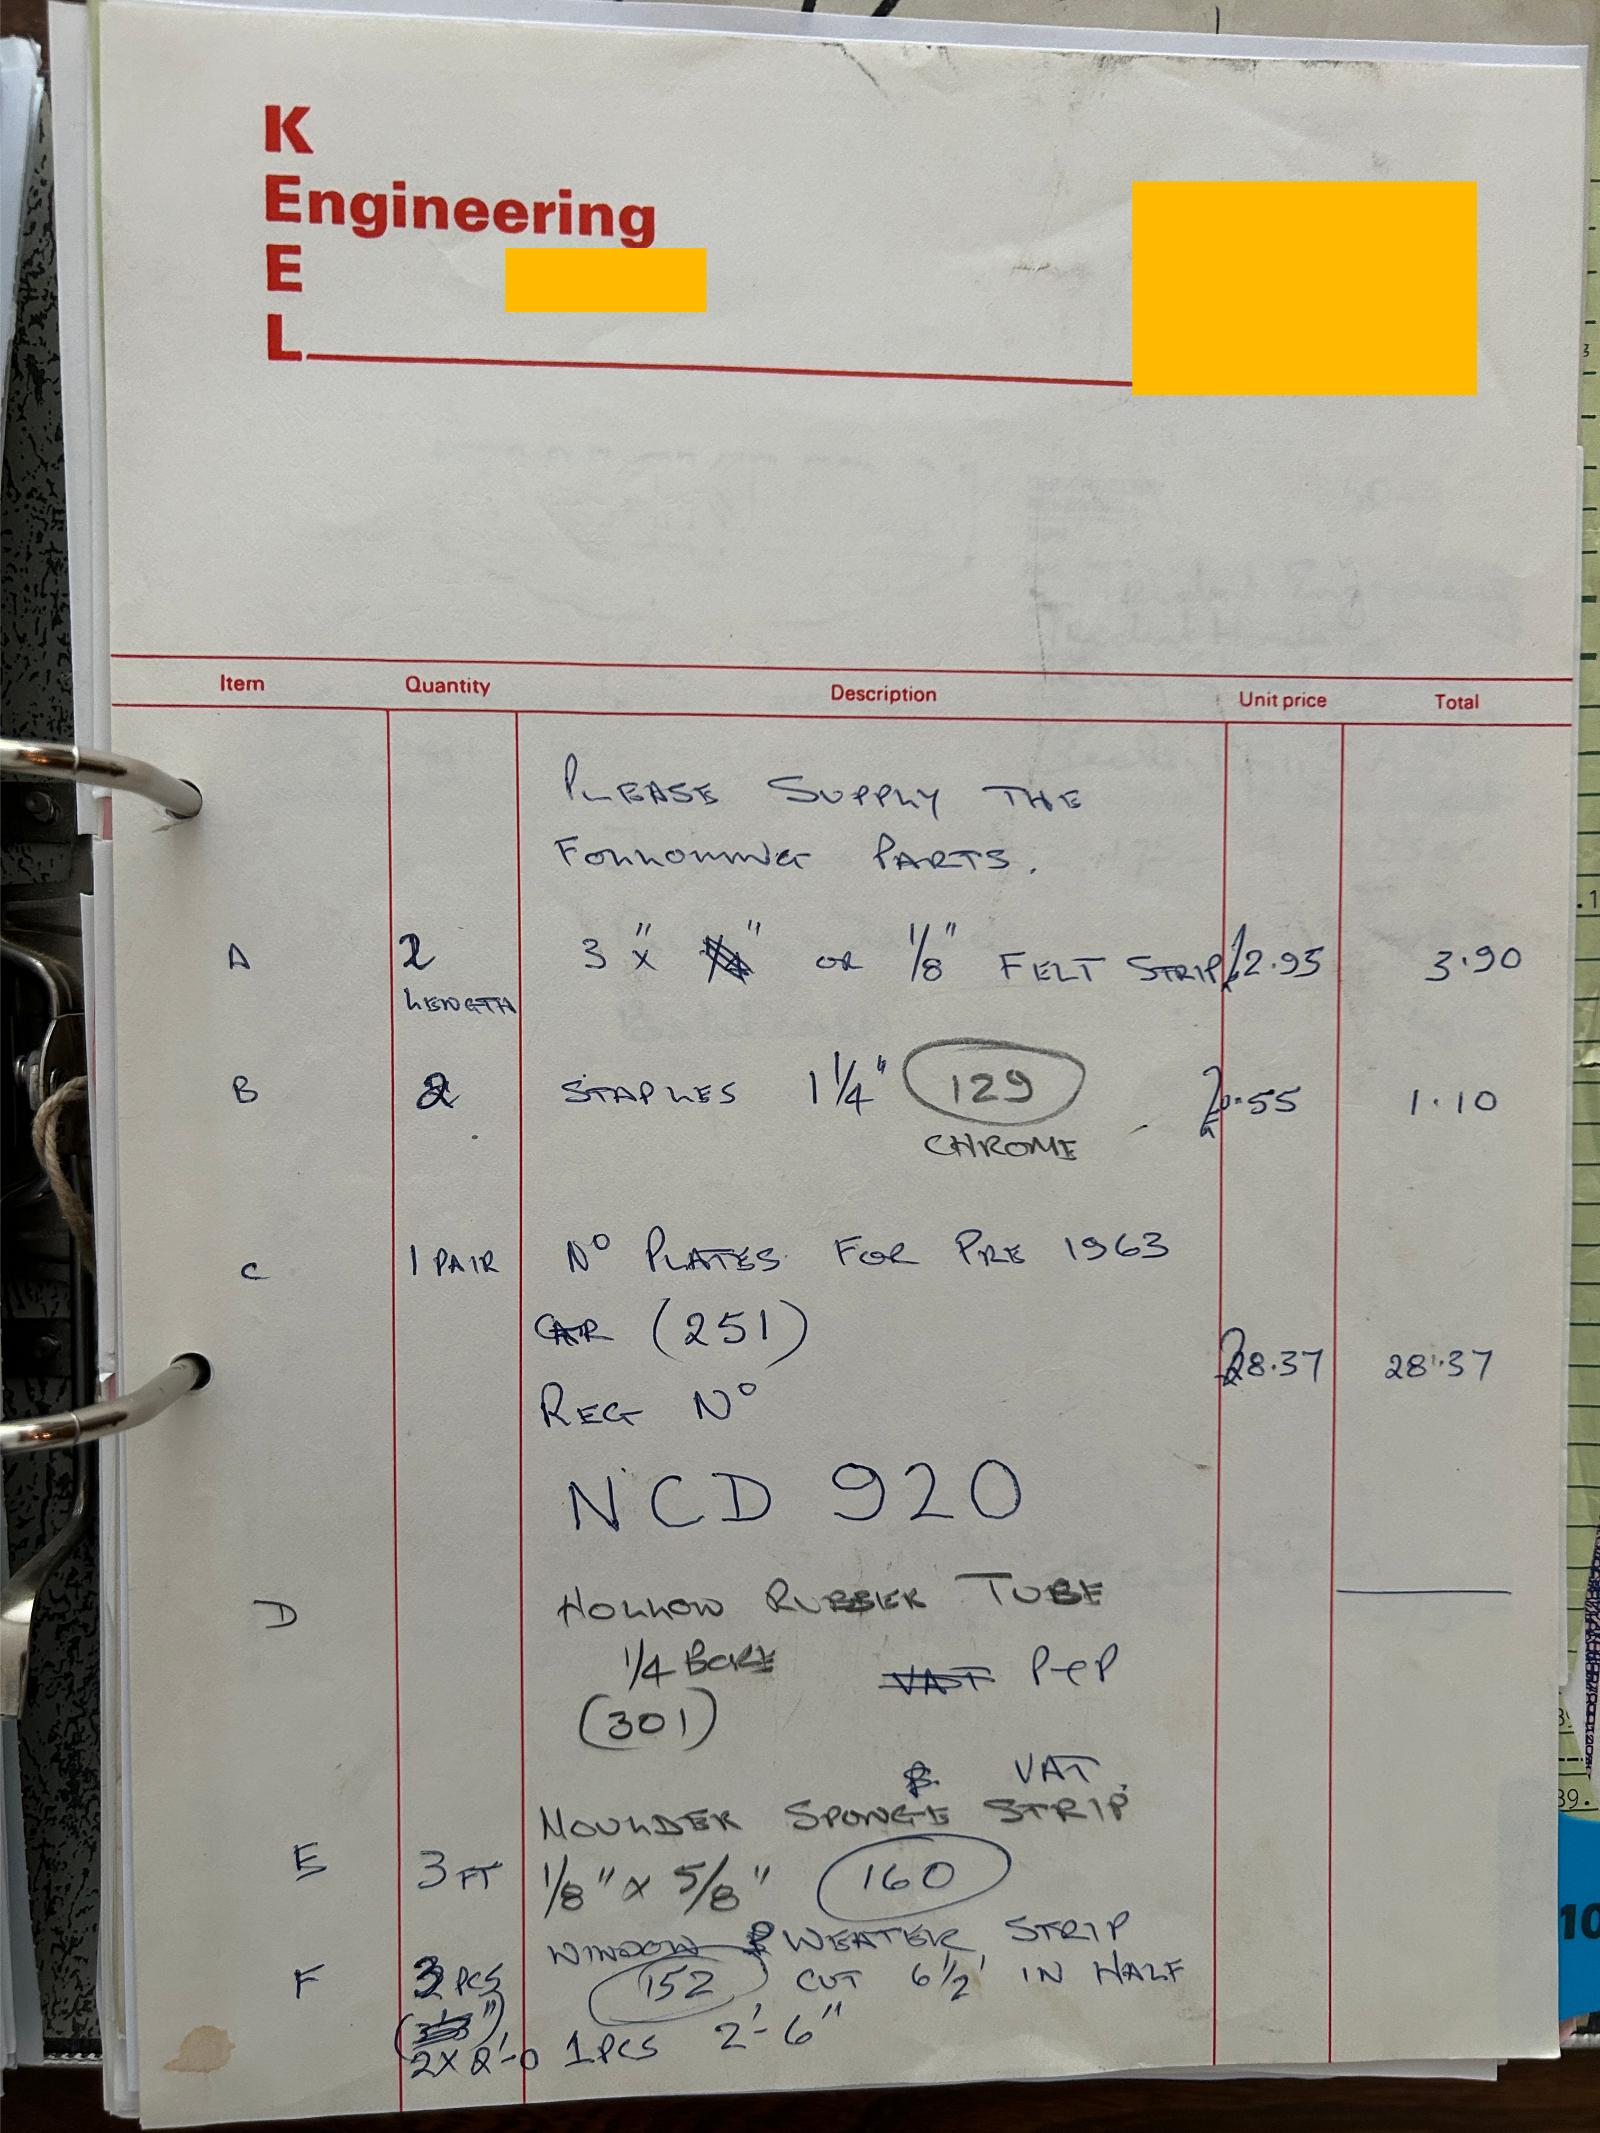 K
Engineering
E
L
Item Quantity Description Unit price Total
PLEASE SUPPLY THE
FOLLOWING PARTS.
A 2 3" x " OR 1/8" FELT STRIP 2.95 3.90
LENGTH
B 2 STAPLES 1 1/4" 129 0.55 1.10
CHROME
C 1 PAIR No PLATES FOR PRE 1963
CAR (251)
28.37 28.37
REG No
NCD 920
D HOLLOW RUBBER TUBE
1/4 BORE VAT P+P
(301)
VAT
MOULDER SPONGE STRIP
E 3 FT 1/8" x 5/8" 160
WINDOW WEATER STRIP
F 3 PCS 152 CUT 6 1/2' IN HALF
2 x 2'-0 1 PCS 2'-6"
39.
10